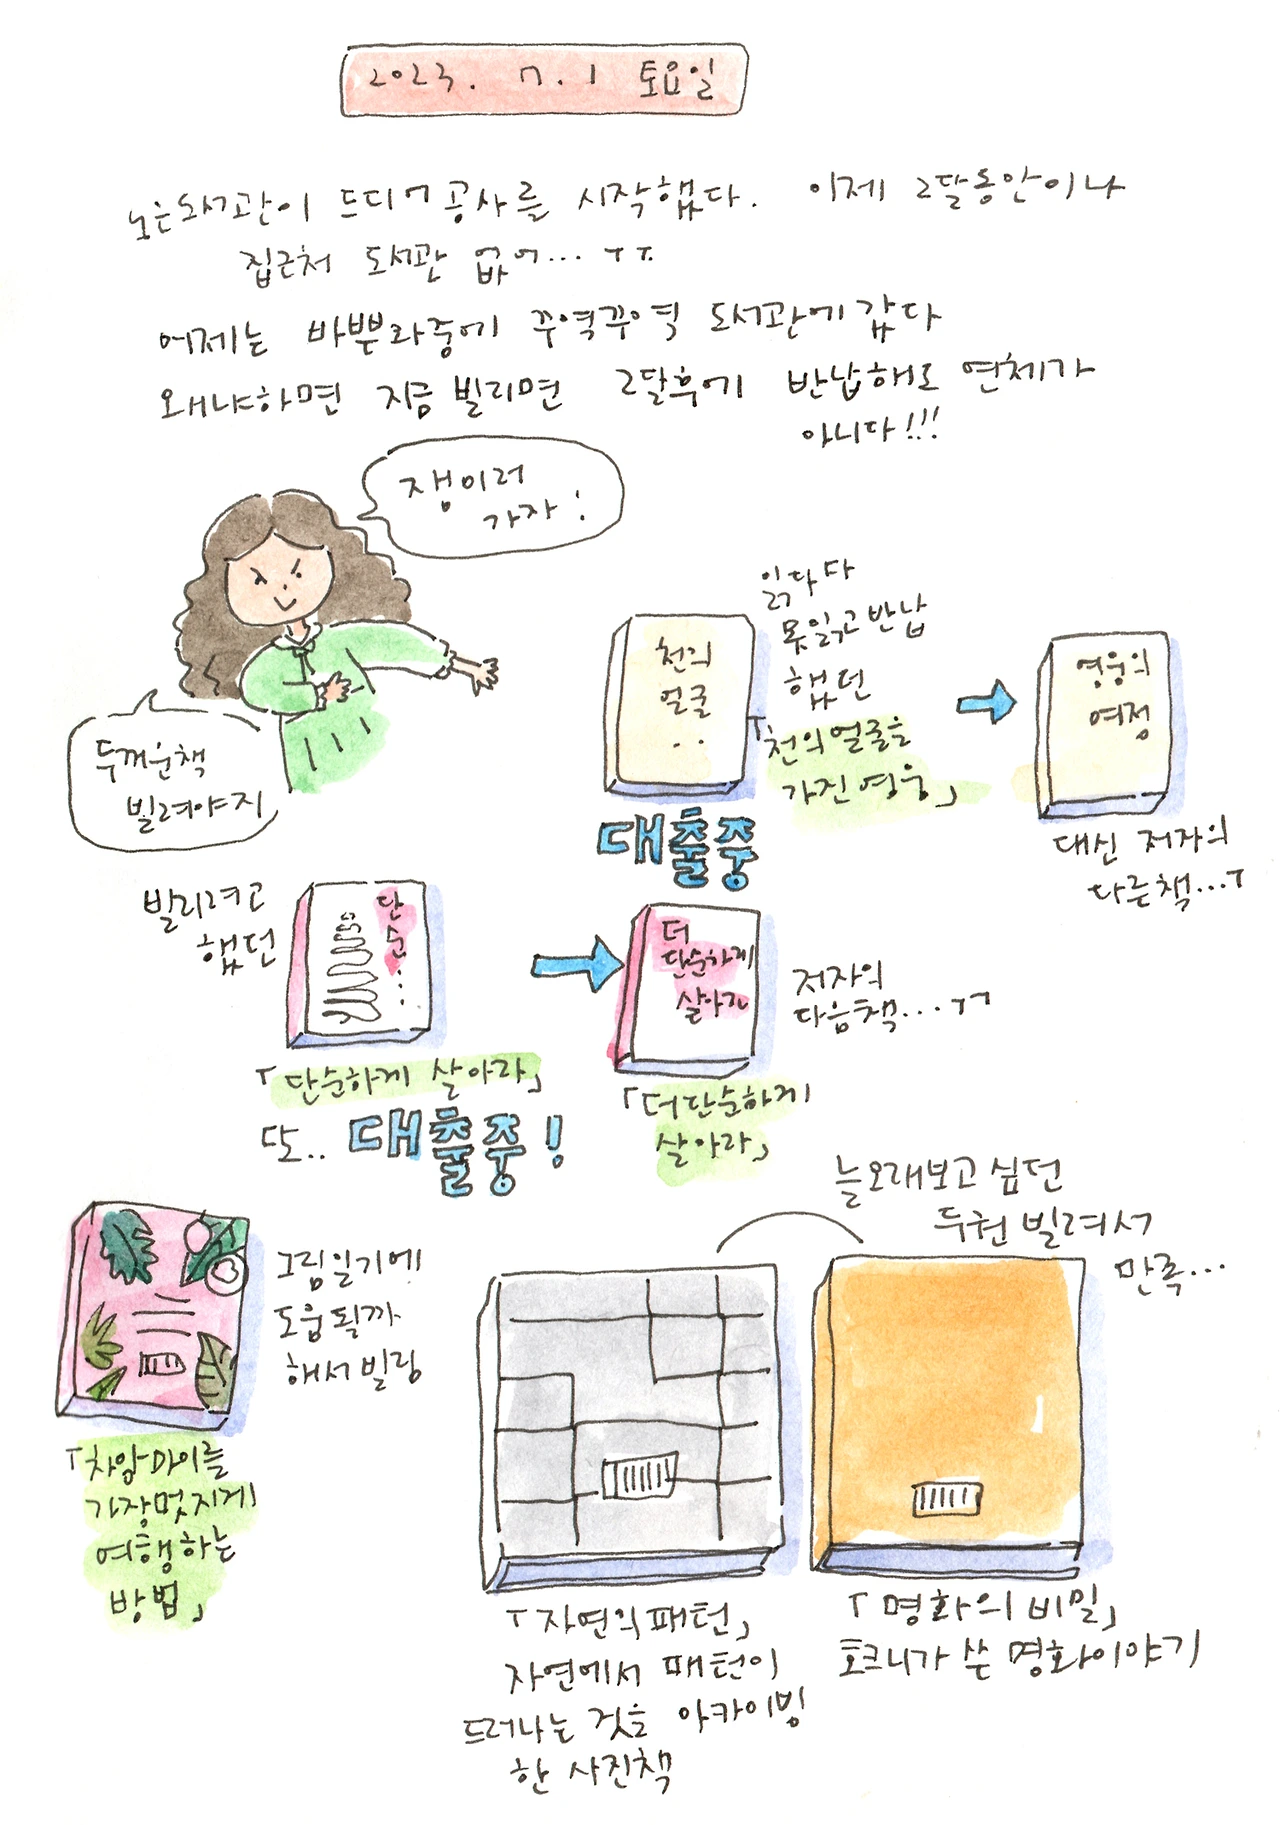 2023. 7. 1 토요일
노은도서관이 드디어 공사를 시작했다. 이제 2달동안이나
집근처 도서관 없어... ㅜㅜ
어제는 바쁜와중에 꾸역꾸역 도서관에 갔다
왜냐하면 지금 빌리면 2달후에 반납해도 연체가
아니다!!!
쟁이러
가자!
두꺼운책
빌려야지
천의
얼굴
..
읽다가
못읽고 반납
했던
「천의 얼굴을
가진 영웅」
대출중
영웅의
여정
대신 저자의
다른책...ㅜ
빌리려고
했던
단순...
「단순하게 살아라」
또.. 대출중!
더
단순하게
살아라
저자의
다음책...ㅜㅜ
「더 단순하게
살아라」
그림일기에
도움될까
해서 빌림
「치앙마이를
가장멋지게
여행하는
방법」
늘오래보고 싶던
두권 빌려서
만족...
「자연의 패턴」
자연에서 패턴이
드러나는 것을 아카이빙
한 사진책
「명화의 비밀」
호크니가 쓴 명화이야기